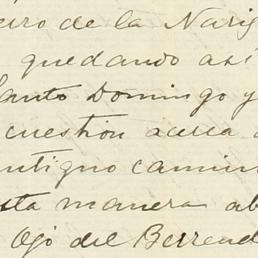 de la Nari
quedando así
anto Domingo y
cuestión acerca
ntiguo camin
sta manera ab
Ojo del Berrend